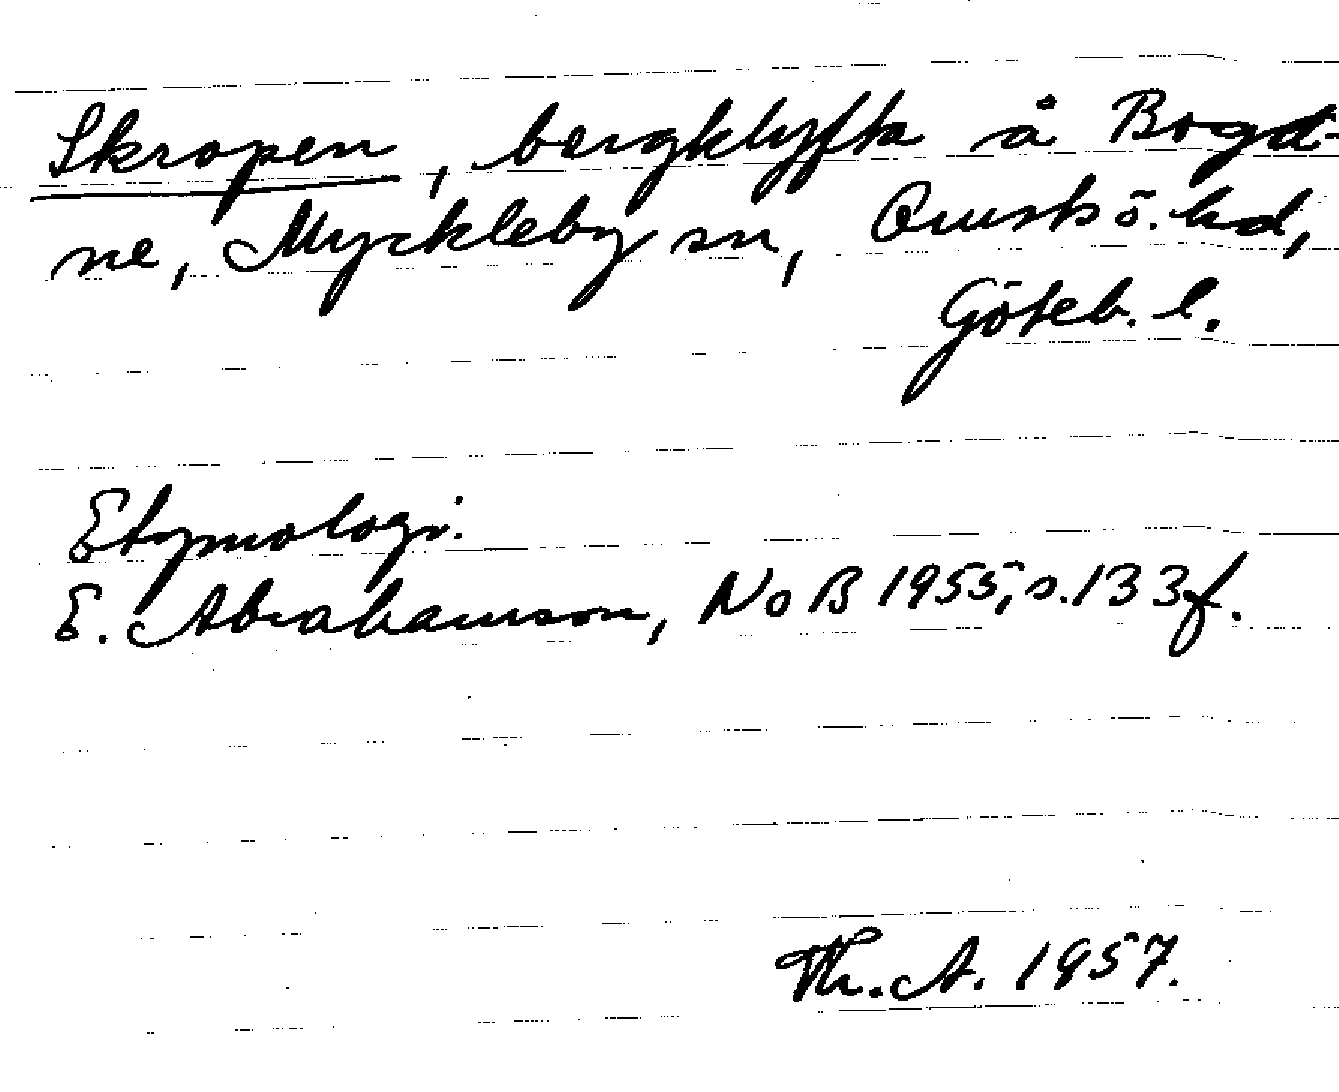 Skropen, bergklyfta å Bogd-
ne, Myckleby sn, Orusts ö. hd,
Göteb. l.
Etymologi.
E. Abrahamson, NoB 1955, s. 133f.
Th. A. 1957.